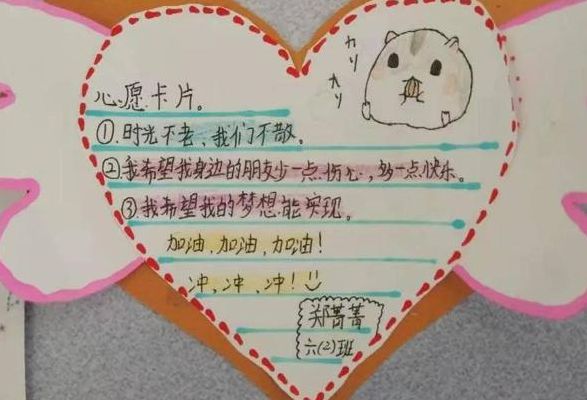 心愿卡片。
①.时光不老,我们不散。
②我希望我身边的朋友少一点伤心,多一点快乐。
③我希望我的梦想能实现。
加油,加油,加油!
冲,冲,冲!
郑菁菁
六(2)班
カリ
カリ